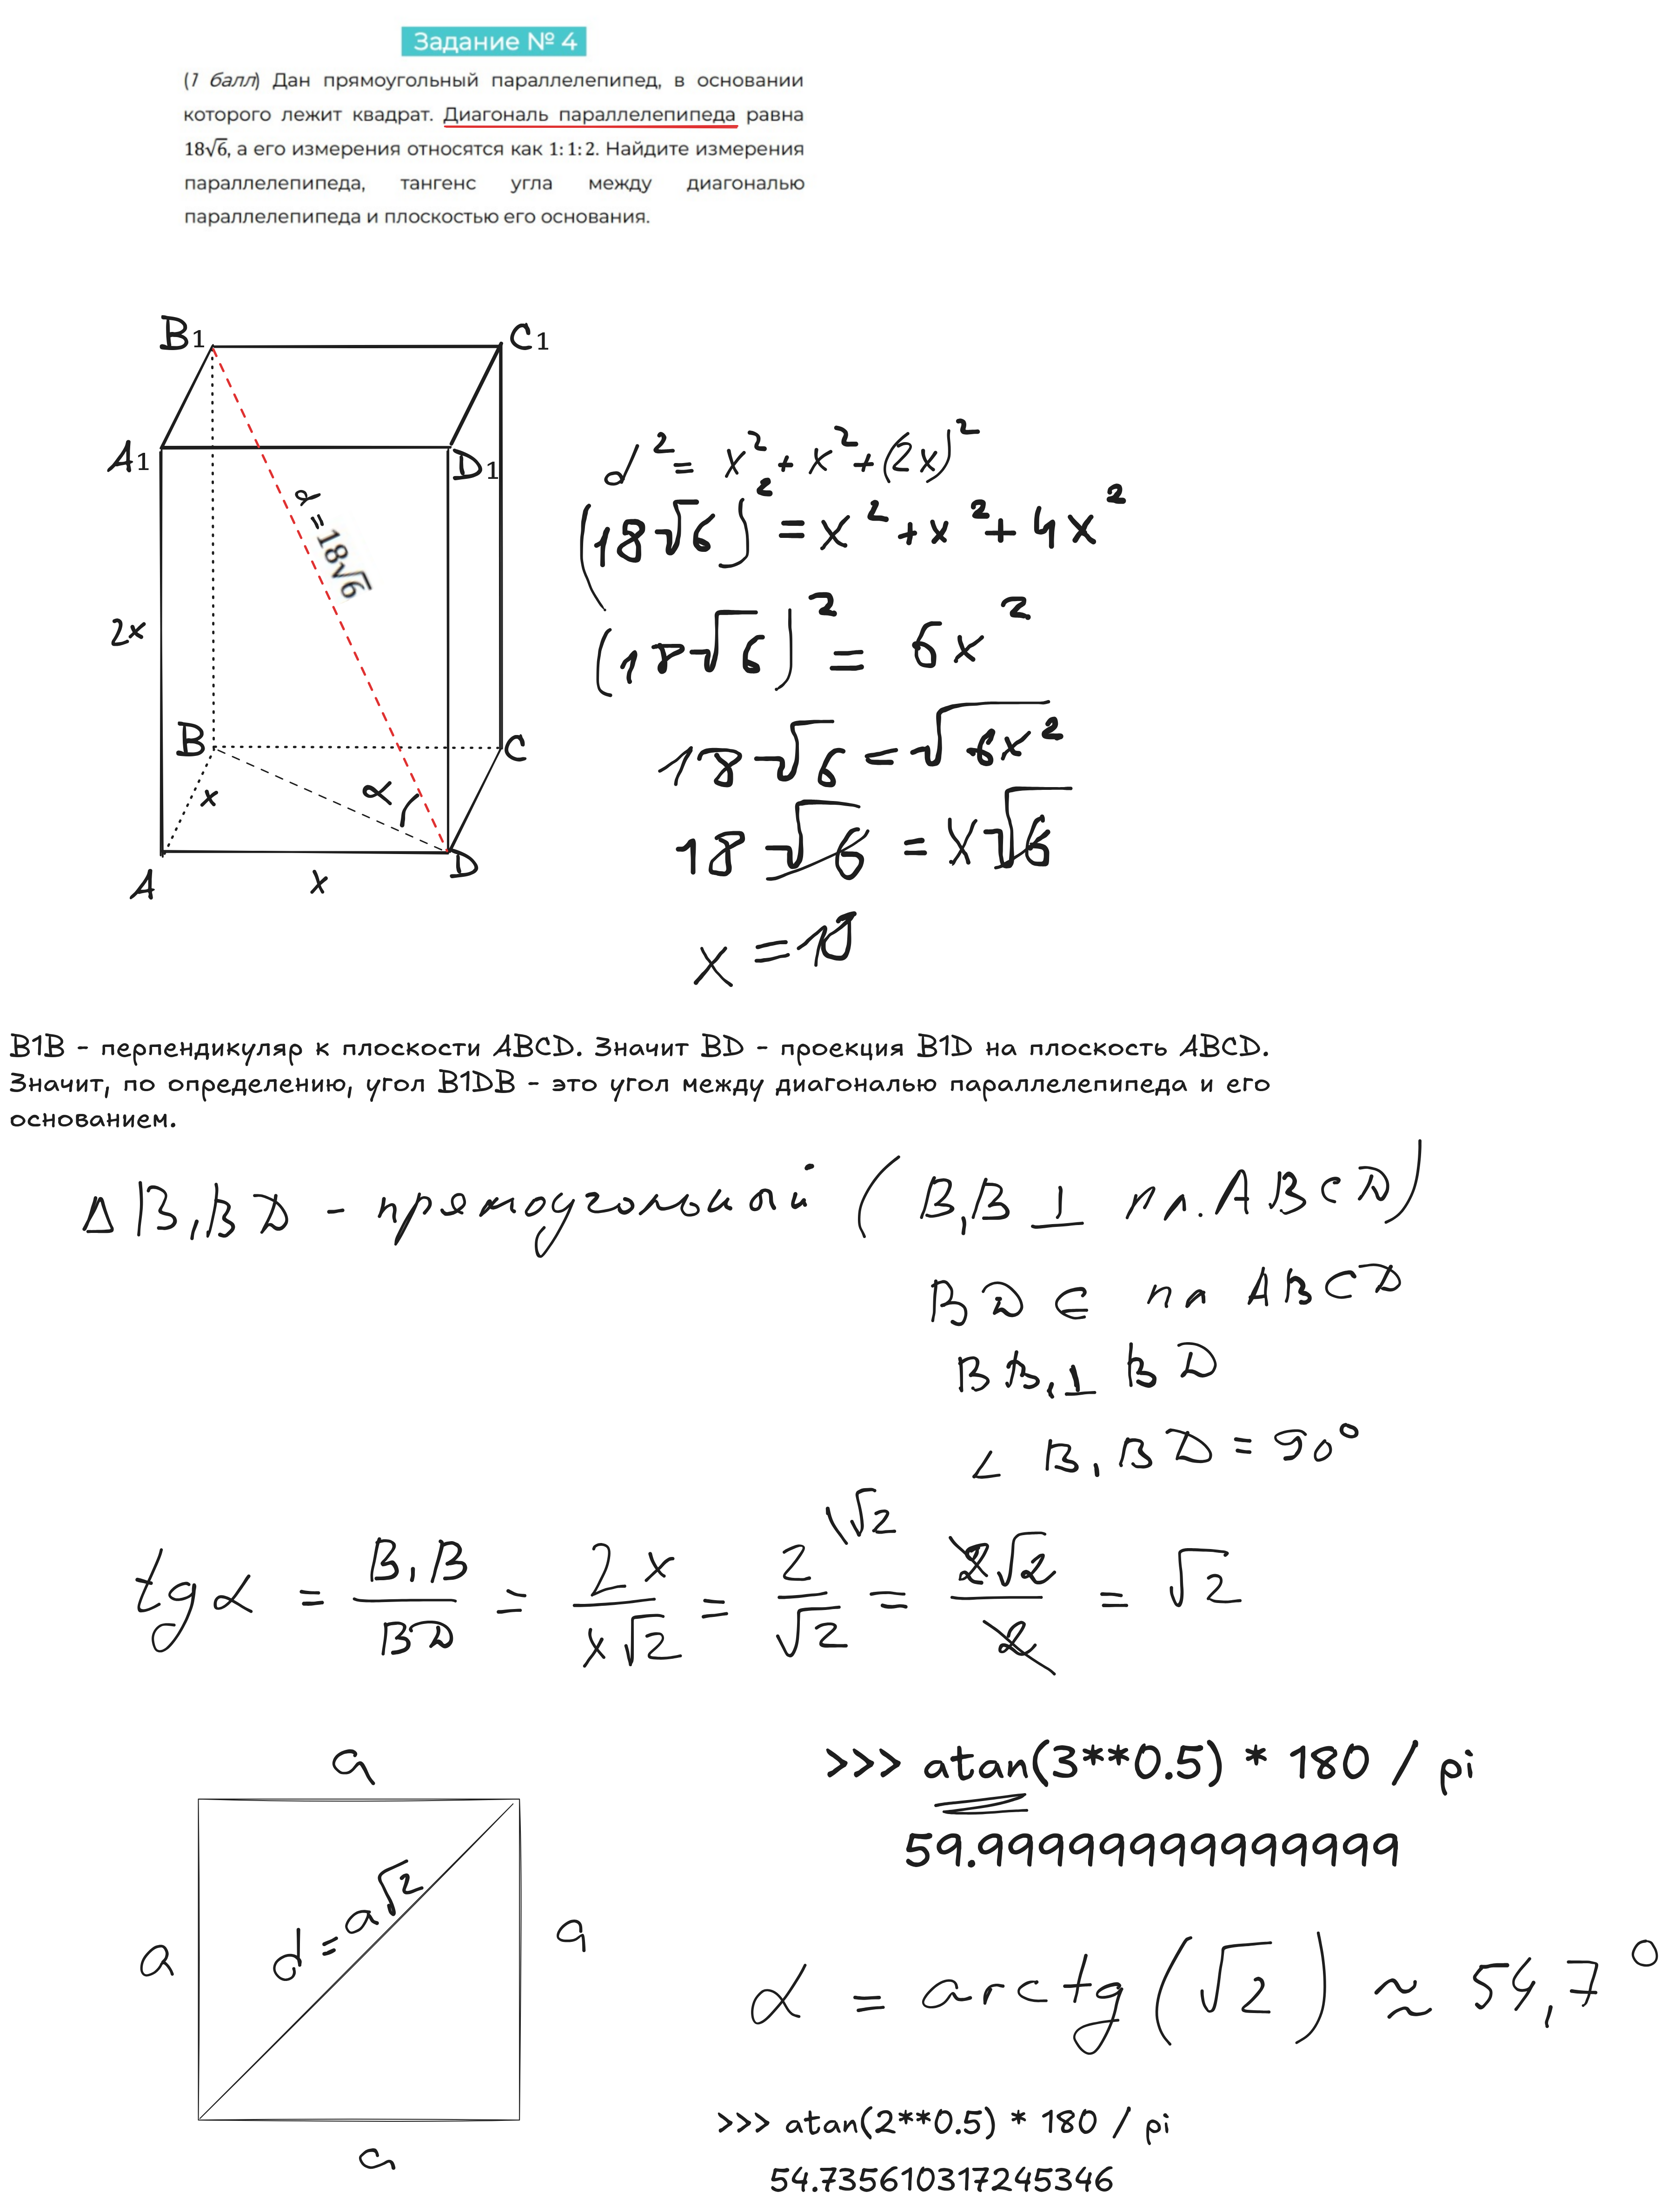 Задание № 4
(1 балл) Дан прямоугольный параллелепипед, в основании
которого лежит квадрат. Диагональ параллелепипеда равна
18√6, а его измерения относятся как 1:1:2. Найдите измерения
параллелепипеда, тангенс угла между диагональю
параллелепипеда и плоскостью его основания.
B1
C1
A1
D1
d = 18√6
2x
B
C
x
α
A
x
D
d² = x² + x² + (2x)²
(18√6)² = x² + x² + 4x²
(18√6)² = 6x²
18√6 = √6x²
18√6 = x√6
x = 18
B1B - перпендикуляр к плоскости ABCD. Значит BD - проекция B1D на плоскость ABCD.
Значит, по определению, угол B1DB - это угол между диагональю параллелепипеда и его
основанием.
Δ B₁BD - прямоугольный (B₁B ⊥ пл. ABCD)
BD ⊆ пл ABCD
BB₁ ⊥ BD
∠ B₁BD = 90°
tg α = B₁B/BD = 2x/x√2 = 2\√2/√2 = 2√2/2 = √2
a
a
d = a√2
a
a
>>> atan(3**0.5) * 180 / pi
59.99999999999999
α = arctg(√2) ≈ 54,7°
>>> atan(2**0.5) * 180 / pi
54.735610317245346